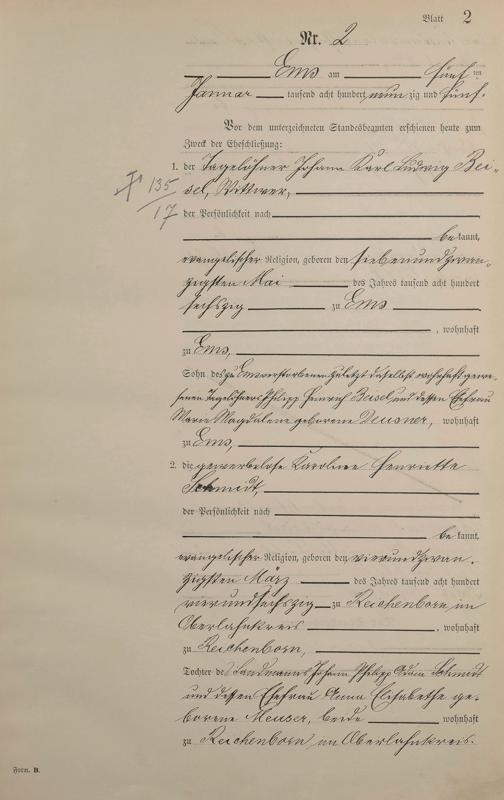 Blatt 2
Nr. 2
Ems am fünf ten
Januar tausend acht hundert neunzig und fünf.
Vor dem unterzeichneten Standesbeamten erschienen heute zum
Zweck der Eheschließung:
1. der Tagelöhner Johann Karl Ludwig Bei-
sel, Wittwer,
† 135/17
der Persönlichkeit nach
be kannt,
evangelischer Religion, geboren den siebenundzwan-
zigsten Mai des Jahres tausend acht hundert
sechszig zu Ems
, wohnhaft
zu Ems,
Sohn des zu Ems verstorbenen zuletzt daselbst wohnhaft gewe-
senen Tagelöhners Philipp Heinrich Beisel und dessen Ehefrau
Marie Magdalene geborene Deusner, wohnhaft
zu Ems,
2. die gewerbelose Karoline Henriette
Schmidt,
der Persönlichkeit nach
be kannt,
evangelischer Religion, geboren den vierundzwan-
zigsten März des Jahres tausend acht hundert
vierundsechszig zu Reichenborn im
Oberlahnkreis , wohnhaft
zu Reichenborn,
Tochter des Landmanns Johann Philipp Adam Schmidt
und dessen Ehefrau Anna Elisabethe ge-
borene Meuser, beide wohnhaft
zu Reichenborn im Oberlahnkreis.
Form. B.